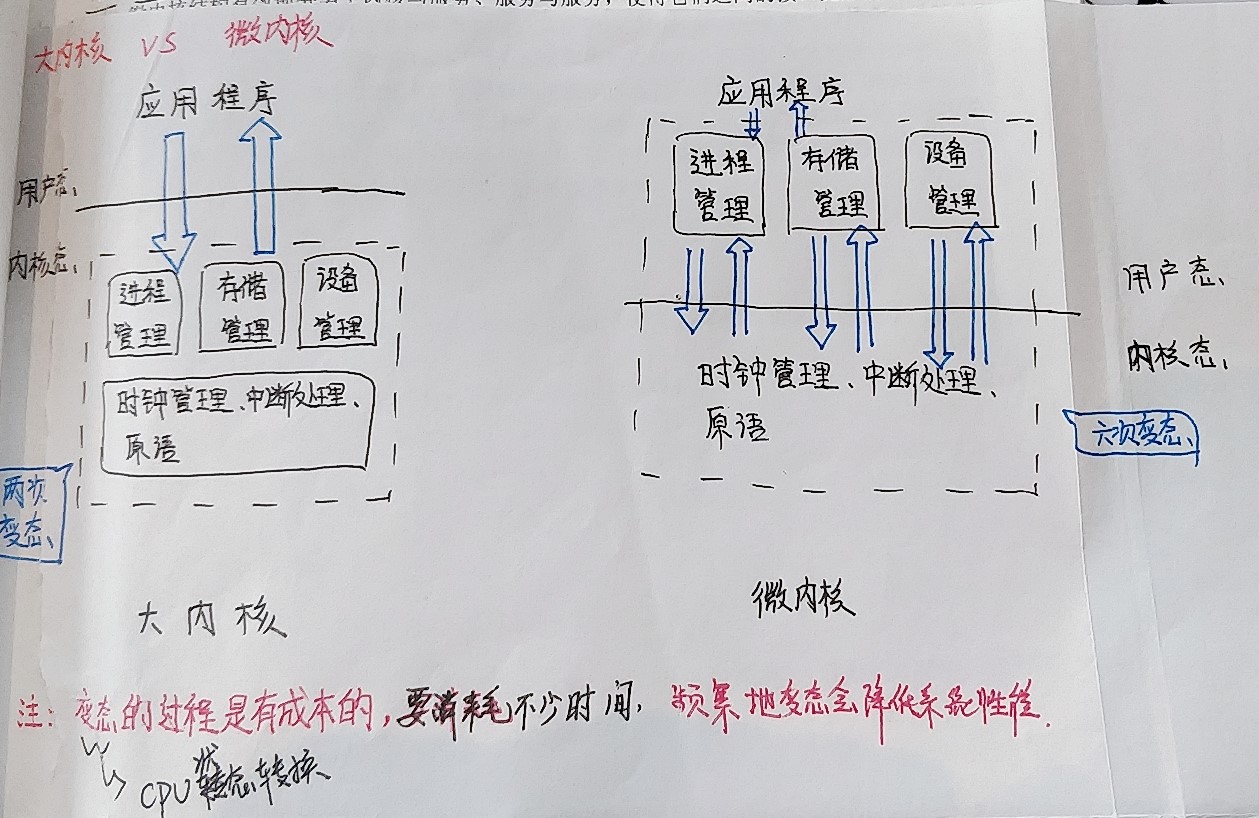 大内核 VS 微内核
应用程序
用户态
内核态
进程管理
存储管理
设备管理
时钟管理、中断处理、
原语
两次
变态
大内核
应用程序
进程管理
存储管理
设备管理
用户态
内核态
时钟管理、中断处理、
原语
六次变态
微内核
注: 变态的过程是有成本的,要消耗不少时间,频繁地变态会降低系统性能.
CPU状态转换